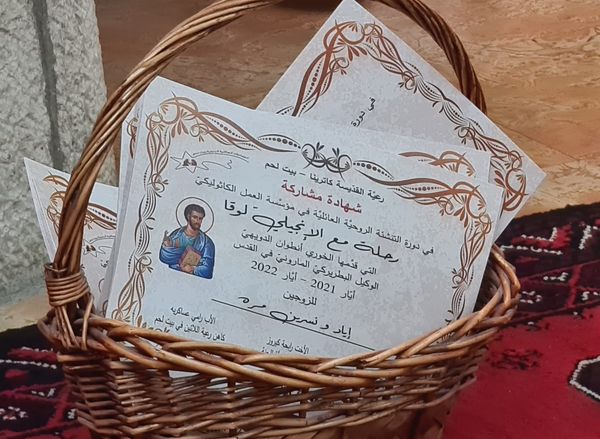 رعيّة القدّيسة كاترينا – بيت لحم
شهادة مشاركة
في دورة التنشئة الروحيّة العائليّة في مؤسّسة العمل الكاثوليكيّ
رحلة مع الإنجيلي لوقا
التي قدّمها الخوري أنطوان الدويهيّ
الوكيل البطريركيّ المارونيّ في القدس
أيّار 2021 – أيّار 2022
للزوجين
إياد و نسرين مره
الأب رامي عساكريه
كاهن رعية اللاتين في بيت لحم
الأخت رابحة كيروز
في دورة